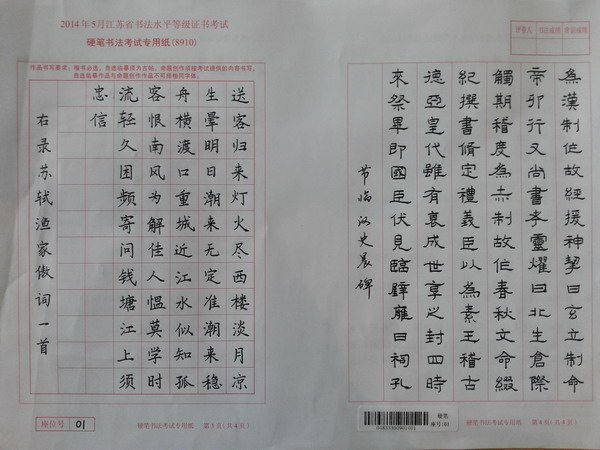 2014年5月江苏省书法水平等级证书考试
硬笔书法考试专用纸(8910)
送客归来灯火尽西楼淡月凉
生晕明日潮来无定准潮来稳
舟横渡口重城近江水似知孤
客恨南风为解佳人愠莫学时
流轻久困频寄问钱塘江上须
忠信
右录苏轼渔家傲词一首
座位号 01
硬笔书法考试专用纸 第3页(共4页)
為漢制作故經援神挈曰玄立制命
帝卯行又尚書考靈燿曰北生倉際
觸期稽度為赤制故作春秋文命綴
紀撰書脩定禮義臣以為素王稽古
德亞皇代雖有襃成世享之封四時
來祭畢即國臣伏見臨璧雍日祠孔
节临汉史晨碑
硬笔
座号:01
硬笔书法考试专用纸 第4页(共4页)